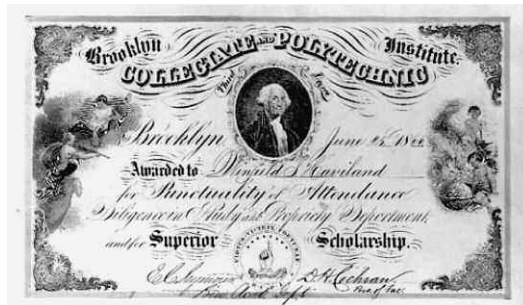 Brooklyn Institute.
COLLEGIATE AND POLYTECHNIC
Third
Brooklyn, June
Awarded to Winfield S Haviland
for Punctuality of Attendance
Diligence in Study and Propriety Deportment,
and for Superior Scholarship.
D. H. Cochran